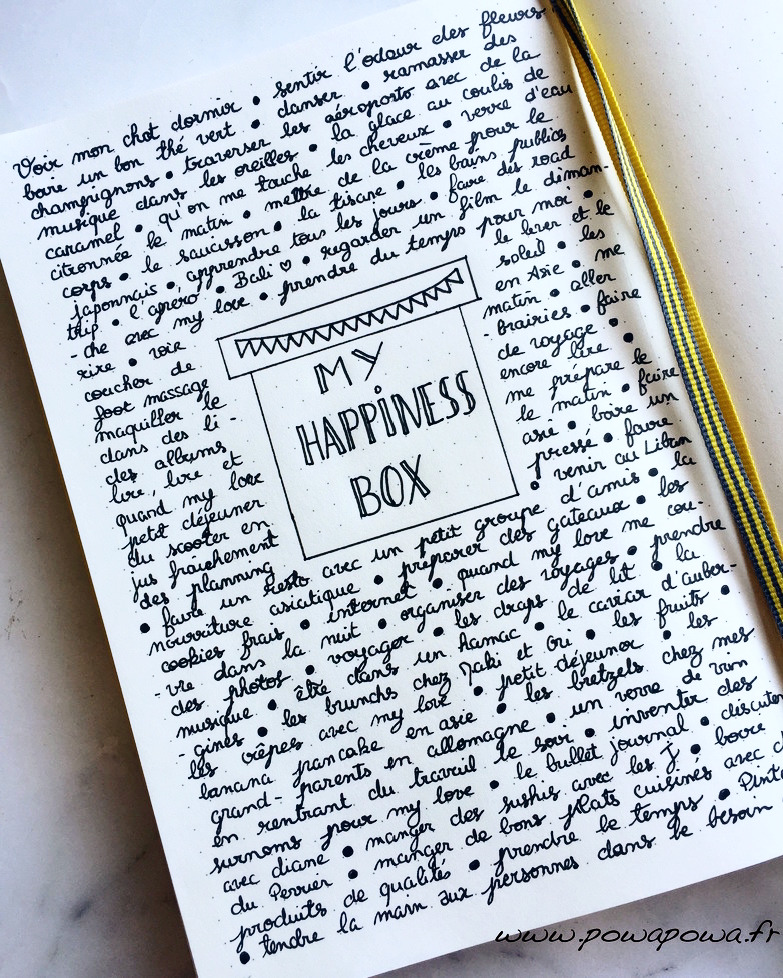 Voir mon chat dormir • sentir l'odeur des fleurs •
boire un bon thé vert • danser • ramasser des
champignons • traverser les aéroports avec de la
musique dans les oreilles • la glace au coulis de
caramel • qu'on me touche les cheveux • verre d'eau
citronnée le matin • mettre de la crème pour le
corps • le saucisson • la tisane • les bains publics
japonnais • apprendre tous les jours • faire des road
trip • l'apéro • Bali ♡ • regarder un film le diman-
-che avec my love • prendre du temps pour moi •
rire • voir le lever et le
coucher de soleil • les
foot massage en Asie • me
maquiller le matin • aller
dans des li- -brairies • faire
des albums de voyage •
lire, lire et encore lire •
quand my love me prépare le
petit déjeuner le matin • faire
du scooter en asie • boire un
jus fraîchement pressé • faire
des planning • venir au Liban
• faire un resto avec un petit groupe d'amis • la
nourriture asiatique • préparer des gateaux • les
cookies frais • internet • quand my love me cou-
-vre dans la nuit • organiser des voyages • prendre
des photos • voyager • les draps de lit • la
musique • être dans un Hamac • le caviar d'auber-
-gines • les brunchs chez Jaki et Ori • les fruits •
les crêpes avec my love • petit déjeuner • les
banana pancake en asie • les bretzels chez mes
grand-parents en allemagne • un verre de vin
en rentrant du travail le soir • inventer des
surnoms pour my love • le bullet journal • discuter
avec diane • manger des sushis avec les J • boire
du Perrier • manger de bons plats cuisinés avec
produits de qualités • prendre le temps •
• tendre la main aux personnes dans le besoin
MY
HAPPINESS
BOX
www.powapowa.fr